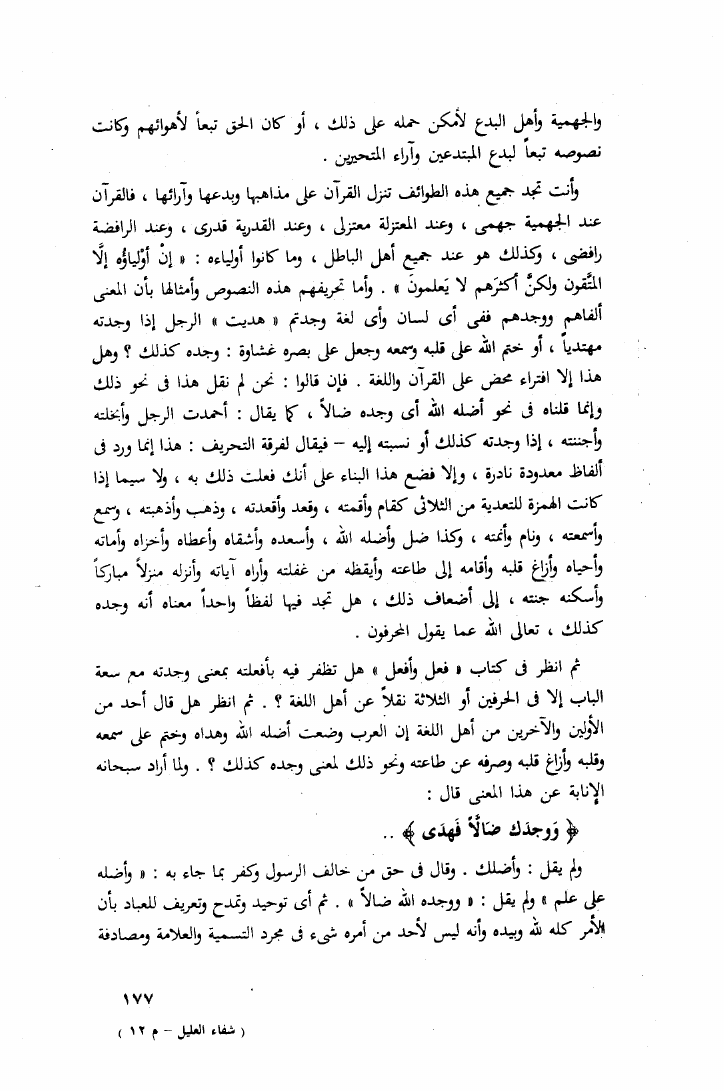 والجهمية وأهل البدع لأمكن حمله على ذلك ، أو كان الحق تبعاً لأهوائهم وكانت
نصوصه تبعاً لبدع المبتدعين وآراء المتحيرين .
وأنت تجد جميع هذه الطوائف تنزل القرآن على مذاهبها وبدعها وآرائها ، فالقرآن
عند الجهمية جهمى ، وعند المعتزلة معتزلى ، وعند القدرية قدرى ، وعند الرافضة
رافضى ، وكذلك هو عند جميع أهل الباطل ، وما كانوا أولياءه : « إنْ أوْلياؤُه إلَّا
المتَّقون ولكنَّ أكثرَهم لا يَعلمونَ » . وأما تحريفهم هذه النصوص وأمثالها بأن المعنى
ألفاهم ووجدهم ففى أى لسان وأى لغة وجدتم « هديت » الرجل إذا وجدته
مهتدياً ، أو ختم الله على قلبه وسمعه وجعل على بصره غشاوة : وجده كذلك ؟ وهل
هذا إلا افتراء محض على القرآن واللغة . فإن قالوا : نحن لم نقل هذا فى نحو ذلك
وإنما قلناه فى نحو أضله الله أى وجده ضالاً ، كما يقال : أحمدت الرجل وأبخلته
وأجننته ، إذا وجدته كذلك أو نسبته إليه – فيقال لفرقة التحريف : هذا إنما ورد فى
ألفاظ معدودة نادرة ، وإلا فضع هذا البناء على أنك فعلت ذلك به ، ولا سيما إذا
كانت الهمزة للتعدية من الثلاثى كقام وأقمته ، وقعد وأقعدته ، وذهب وأذهبته ، وسمع
وأسمعته ، ونام وأنمته ، وكذا ضل وأضله الله ، وأسعده وأشقاه وأعطاه وأخزاه وأماته
وأحياه وأزاغ قلبه وأقامه إلى طاعته وأيقظه من غفلته وأراه آياته وأنزله منزلاً مباركاً
وأسكنه جنته ، إلى أضعاف ذلك ، هل تجد فيها لفظاً واحداً معناه أنه وجده
كذلك ، تعالى الله عما يقول المحرفون .
ثم انظر فى كتاب « فعل وأفعل » هل تظفر فيه بأفعلته بمعنى وجدته مع سعة
الباب إلا فى الحرفين أو الثلاثة نقلاً عن أهل اللغة ؟ . ثم انظر هل قال أحد من
الأولين والآخرين من أهل اللغة إن العرب وضعت أضله الله وهداه وختم على سمعه
وقلبه وأزاغ قلبه وصرفه عن طاعته ونحو ذلك لمعنى وجده كذلك ؟ . ولما أراد سبحانه
الإنابة عن هذا المعنى قال :
﴿ وَوجدَك ضَالًّا فَهدَى ﴾ ..
ولم يقل : وأضلك . وقال فى حق من خالف الرسول وكفر بما جاء به : « وأضله
على علم » ولم يقل : « ووجده الله ضالاً » . ثم أى توحيد وتمدح وتعريف للعباد بأن
الأمر كله لله وبيده وأنه ليس لأحد من أمره شىء فى مجرد التسمية والعلامة ومصادفة
١٧٧
( شفاء العليل – م ١٢ )